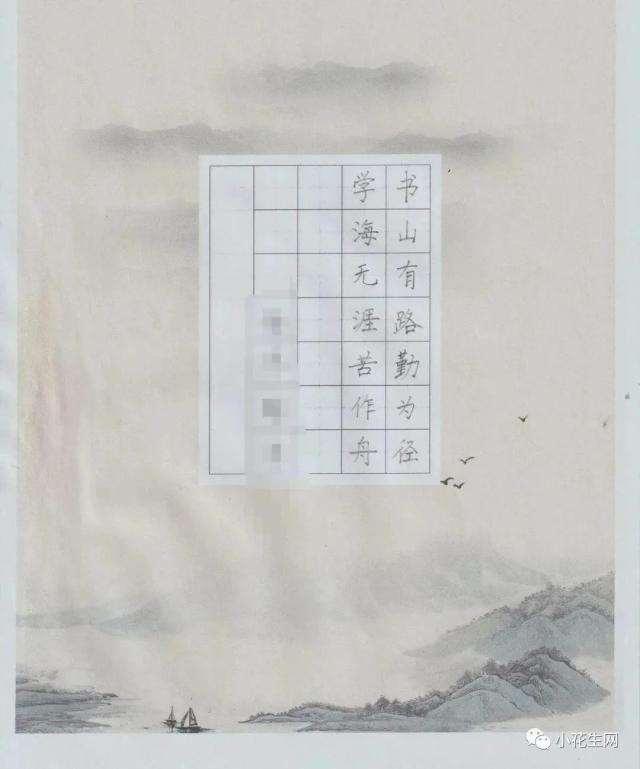 书山有路勤为径
学海无涯苦作舟
小花生网